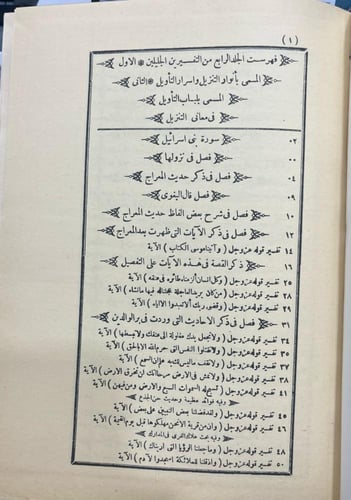 (١)
فهرست الجلد الرابع من التفسيرين الجليلين * الاول
المسمى بأنوار التنزيل واسرار التأويل * الثانى
المسمى بلباب التأويل
فى معانى التنزيل
٠٢ سورة بنى اسرائيل
٠٠ فصل فى نزولها
٠٤ فصل فى ذكر حديث المعراج
٠٩ فصل قال البغوى
١٠ فصل فى شرح بعض الفاظ حديث المعراج
١٢ فصل فى ذكر الآيات التى ظهرت بعد المعراج
١٤ تفسير قوله عز وجل ( وآتينا موسى الكتاب ) الآية
١٦ ذكر القصة فى هذه الآيات على التفصيل
٢٥ تفسير قوله عز وجل ( وكل انسان ألزمناه طائره فى عنقه ) الآية
٢٨ تفسير قوله عز وجل ( من كان يريد العاجلة عجلنا له فيها مانشاء ) الآية
٢٩ تفسير قوله عز وجل ( وقضى ربك ألا تعبدوا الا اياه ) الآية
٣١ فصل فى ذكر الاحاديث التى وردت فى بر الوالدين
٣٤ تفسير قوله عز وجل ( ولا تجعل يدك مغلولة الى عنقك ولا تبسطها ) الآية
٣٥ تفسير قوله عز وجل ( ولا تقتلوا النفس التى حرم الله الا بالحق ) الآية
٣٧ تفسير قوله عز وجل ( ولا تقف ما ليس لك به علم ان السمع ) الآية
٣٨ تفسير قوله عز وجل ( ولا تمش فى الارض مرحا انك لن تخرق الارض ) الآية
٤١ تفسير قوله عز وجل ( تسبح له السموات السبع والارض ومن فيهن ) الآية
وفيه فوائد عظيمة وحديث حنين الجذع
٤٥ تفسير قوله عز وجل ( ولقد فضلنا بعض النبيين على بعض ) الآية
٤٦ تفسير قوله عز وجل ( وان من قرية الا نحن مهلكوها قبل يوم القيمة ) الآية
وفيه بحث هلاك القرى فى المدارك
٤٨ تفسير قوله عز وجل ( وما جعلنا الرؤيا التى اريناك ) الآية
٥٠ تفسير قوله عز وجل ( واذ قلنا للملائكة اسجدوا لآدم ) الآية